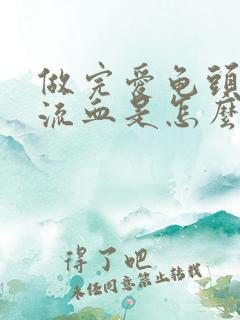 做完爱龟头
流血是怎么
得了吧
未经同意禁止转载